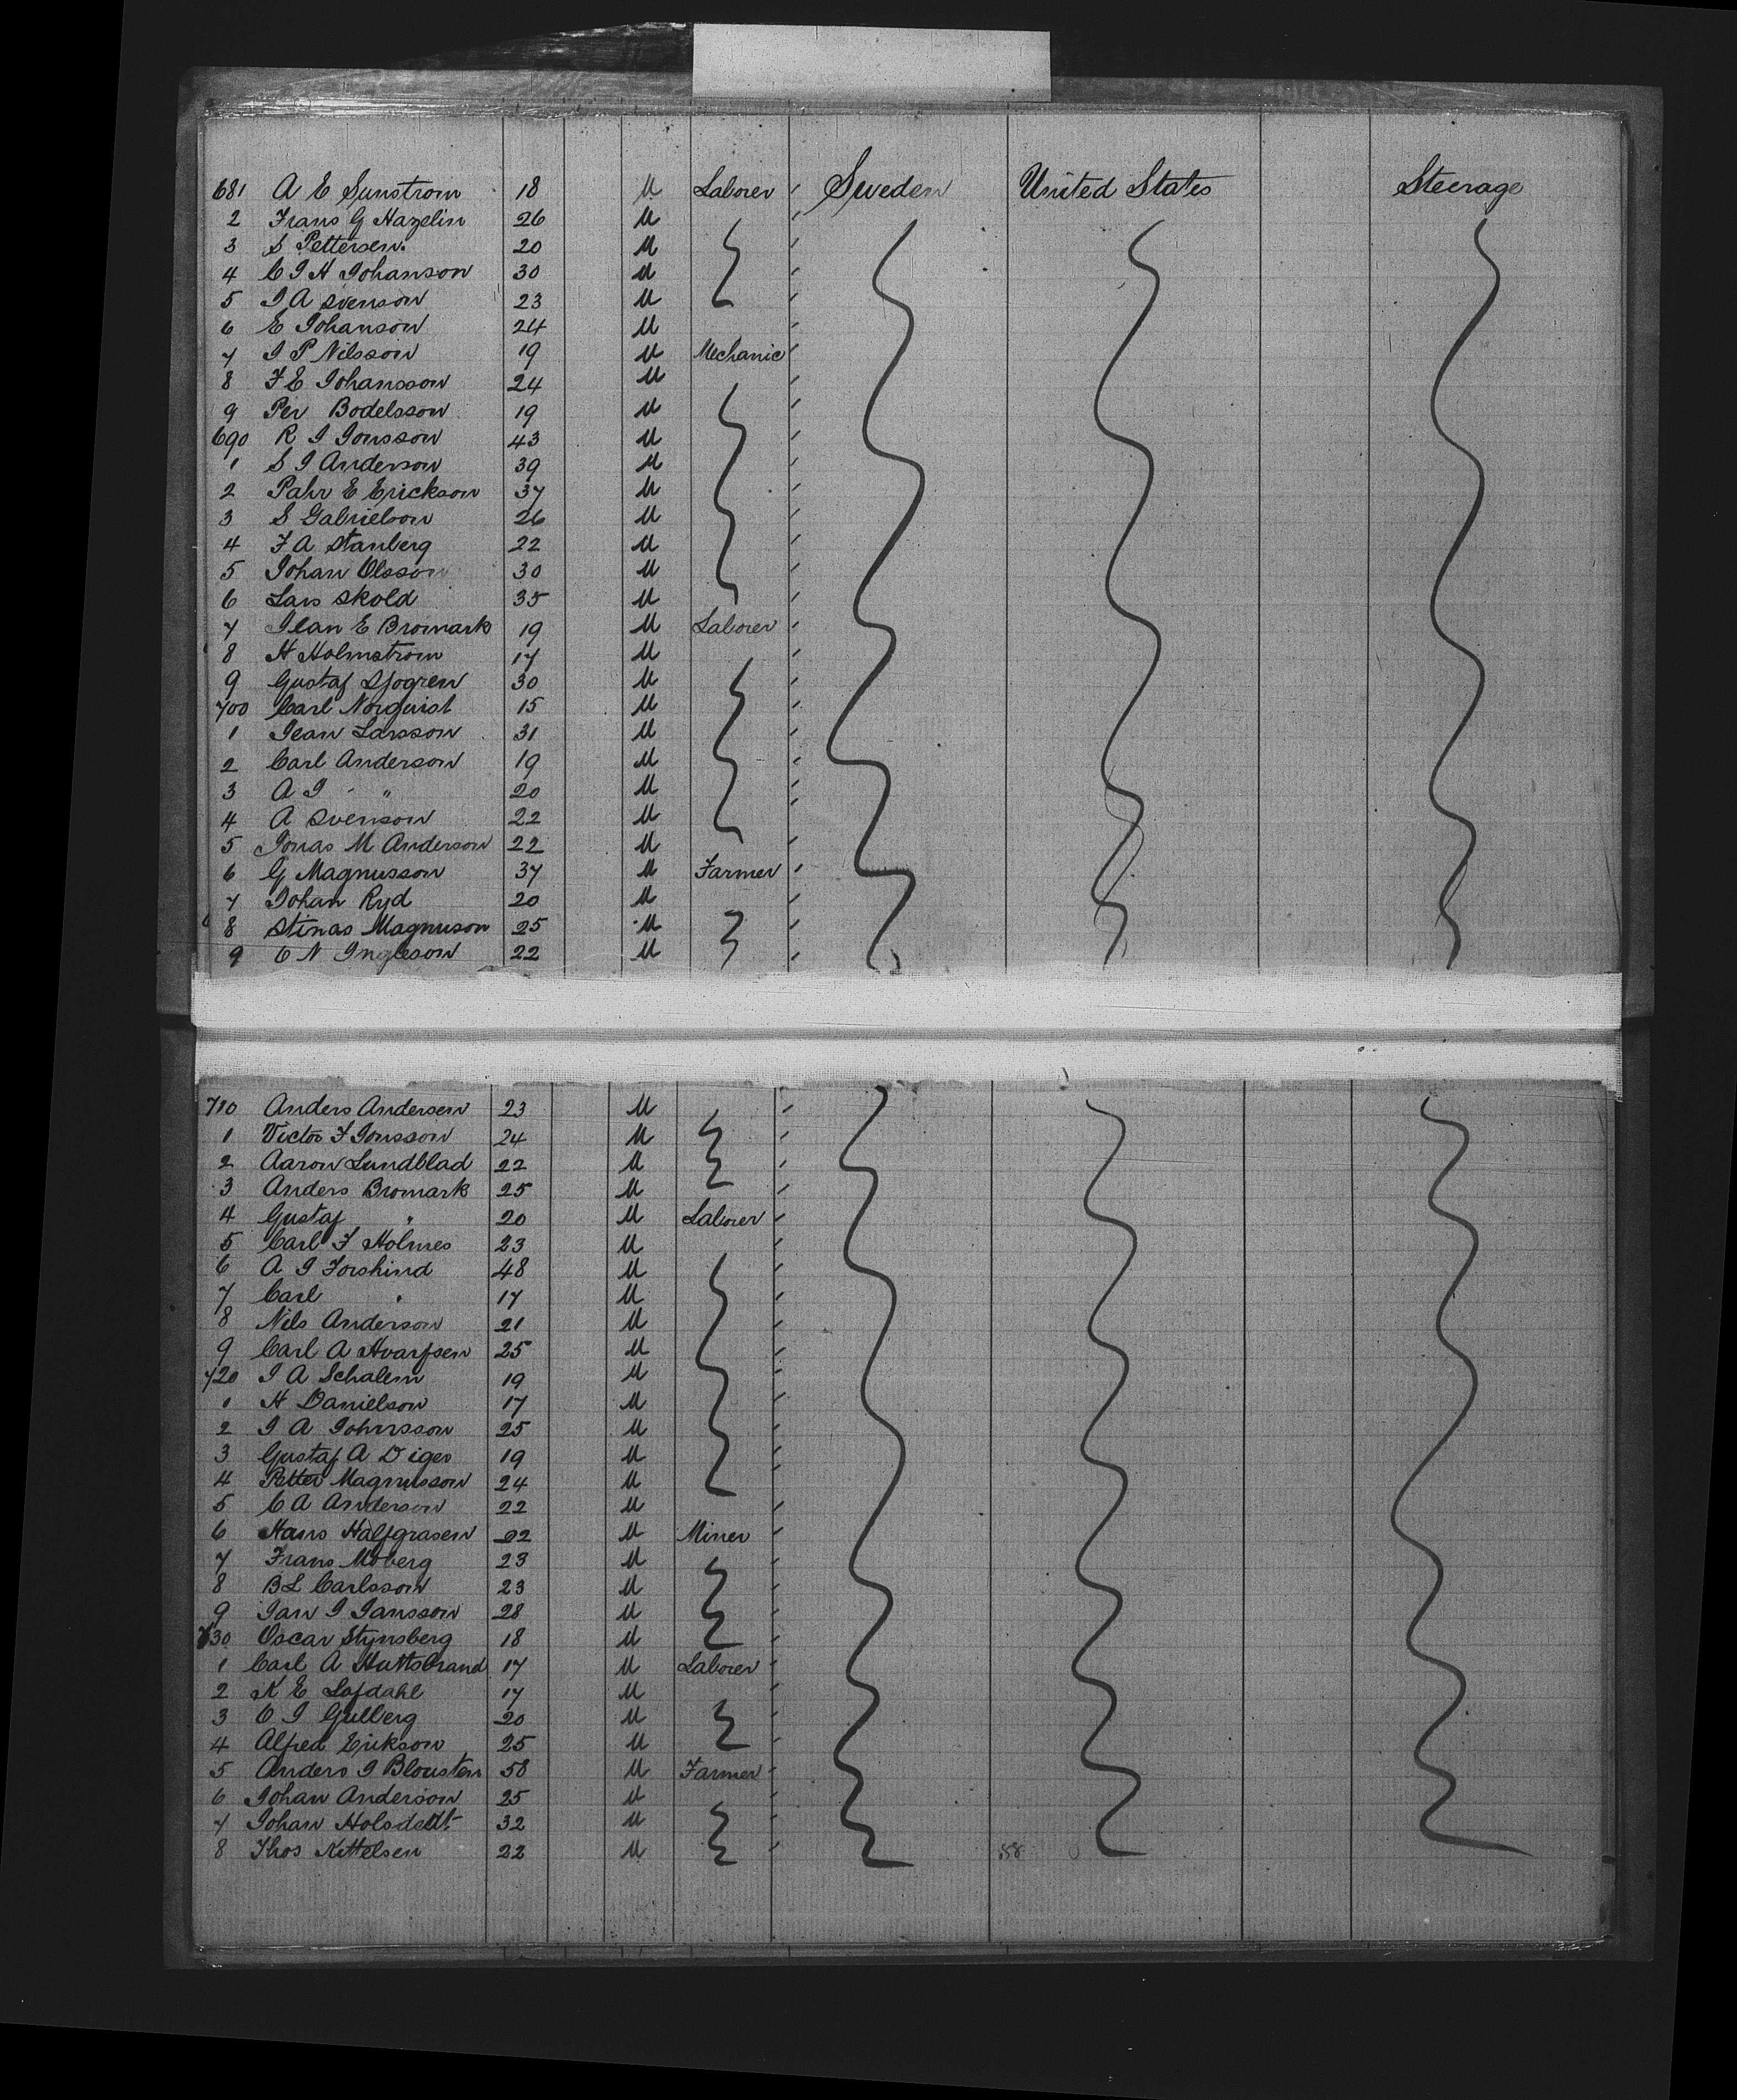 681 A E Sunstrom 18 M Laborer Sweden United States Steerage
2 Frans G Hazelin 26 M
3 S Pettersen 20 M
4 C J H Johanson 30 M
5 J A Svenson 23 M
6 E Johanson 24 M
7 J P Nilsson 19 M Mechanic
8 F E Johansson 24 M
9 Per Bodelsson 19 M
690 R J Jonsson 43 M
1 S J Anderson 39 M
2 Pahr E Erickson 37 M
3 S Gabrielson 26 M
4 F A Stanberg 22 M
5 Johan Olsson 30 M
6 Lars Skold 35 M
7 Jean E Bromark 19 M Laborer
8 H Holmstrom 17 M
9 Gustaf Sjogren 30 M
700 Carl Norquist 15 M
1 Jean Larsson 31 M
2 Carl Anderson 19 M
3 A J " 20 M
4 A Svenson 22 M
5 Jonas M Anderson 22 M
6 G Magnusson 37 M Farmer
7 Johan Ryd 20 M
8 Stinas Magnuson 25 M
9 C N Ingleson 22 M
710 Anders Andersen 23 M
1 Victor F Jonsson 24 M
2 Aaron Lundblad 22 M
3 Anders Bromark 25 M
4 Gustaf " 20 M Laborer
5 Carl F Holmes 23 M
6 A J Forshind 48 M
7 Carl " 17 M
8 Nils Anderson 21 M
9 Carl A Hvarfsen 25 M
720 J A Schalem 19 M
1 H Danielson 17 M
2 J A Johnsson 25 M
3 Gustaf A Diger 19 M
4 Petter Magnusson 24 M
5 C A Anderson 22 M
6 Hans Halfgrasen 22 M Miner
7 Frans Moberg 23 M
8 B L Carlsson 23 M
9 Jan J Jansson 28 M
730 Oscar Stynsberg 18 M
1 Carl A Huttsbrand 17 M Laborer
2 K E Lofdahl 17 M
3 C J Gulberg 20 M
4 Alfred Erikson 25 M
5 Anders J Blousten 58 M Farmer
6 Johan Anderson 25 M
7 Johan Holsdedt 32 M
8 Thos Kittelsen 22 M 58